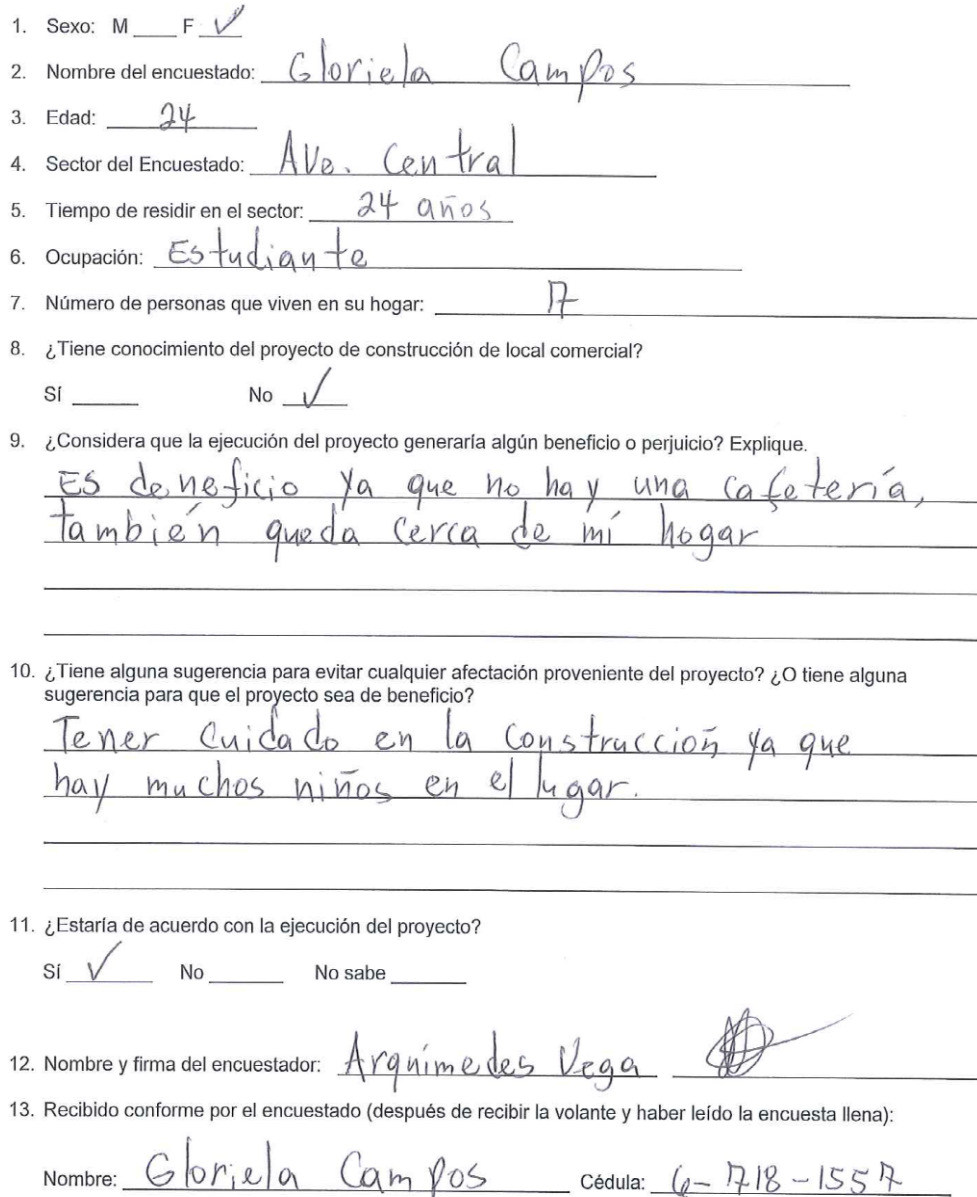 1. Sexo: M ____ F ✓
2. Nombre del encuestado: Gloriela Campos
3. Edad: 24
4. Sector del Encuestado: Ave. Central
5. Tiempo de residir en el sector: 24 años
6. Ocupación: Estudiante
7. Número de personas que viven en su hogar: 7
8. ¿Tiene conocimiento del proyecto de construcción de local comercial?
Sí ____ No ✓
9. ¿Considera que la ejecución del proyecto generaría algún beneficio o perjuicio? Explique.
Es deneficio ya que no hay una cafetería,
también queda cerca de mí hogar
10. ¿Tiene alguna sugerencia para evitar cualquier afectación proveniente del proyecto? ¿O tiene alguna
sugerencia para que el proyecto sea de beneficio?
Tener cuidado en la construcción ya que
hay muchos niños en el lugar.
11. ¿Estaría de acuerdo con la ejecución del proyecto?
Sí ✓ No ____ No sabe ____
12. Nombre y firma del encuestador: Arquímedes Vega
13. Recibido conforme por el encuestado (después de recibir la volante y haber leído la encuesta llena):
Nombre: Gloriela Campos Cédula: 6-718-1557